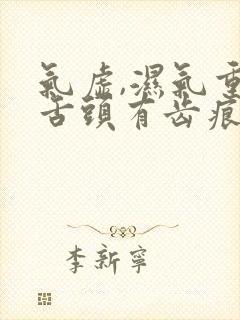 氣虛,濕氣重
舌頭有齿痕
李新寧